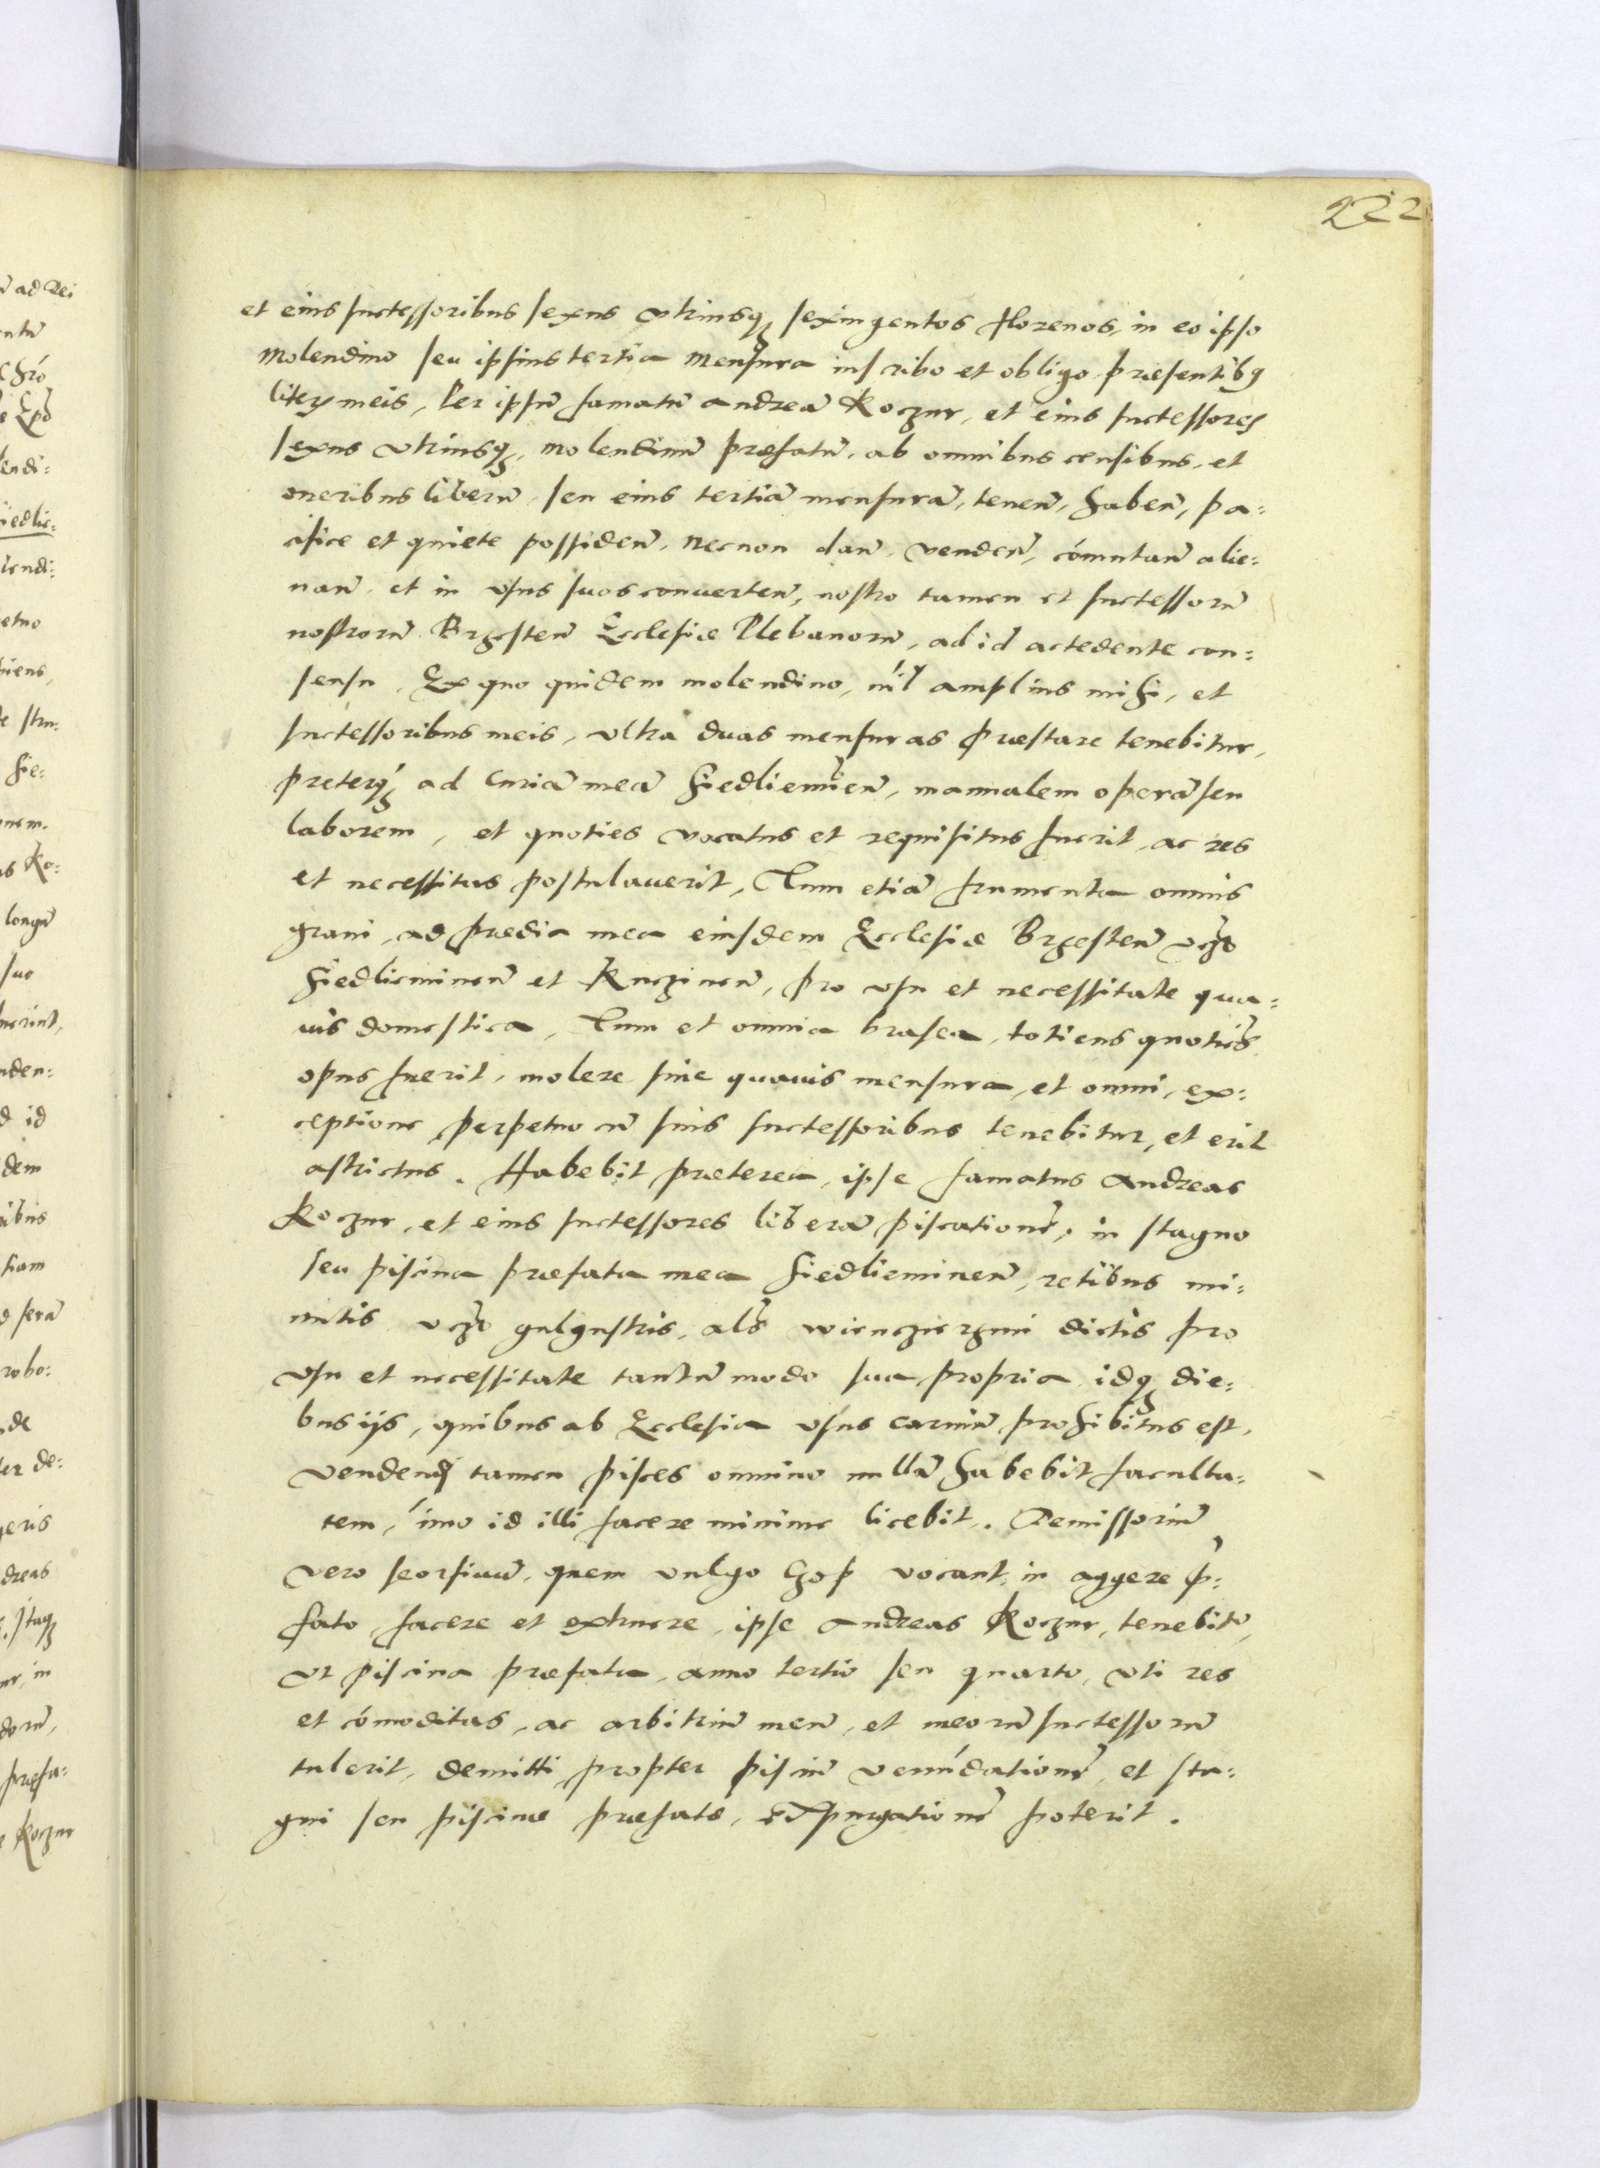 222
et eius successoribus sexus utriusq₃ sexingentos florenos, in eo ipso
molendino seu ipsius tertia mensura inscribo et obligo præsentibꝰ
literis meis, Per ipsũ famatũ Andreã Koczur, et eius successores
sexus utriusq₃, molendinũ præfatũ, ab omnibus censibus, et
oneribus liberũ, seu eius tertiã mensurã, teneñ, habeñ, pa:
cifice et quiete possideñ, necnon dañ, vendeñ, cõmutañ alie:
nañ, et in usus suos converteñ, nostro tamen et successorũ
nostrorũ Brzesteñ Ecclesiæ Plebanorũ, ad id accedente con:
sensu. Ex quo quidem molendino, nil amplius mihi, et
successoribus meis, ultra duas mensuras præstare tenebitur,
preterq₃ ad Curiã meã Siedliemineñ, manualem operã seu
laborem, et quoties vocatus et requisitus fuerit, ac res
et necessitas postulaverit, Tum etiã frumenta omnis
grani, ad prædia mea eiusdem Ecclesiæ Brzesteñ vcz
Siedliemineñ et Kuczineñ, pro usu et necessitate qua:
vis domestica, Tum et omnia brasea, totiens quoties
opus fuerit, molere sine quavis mensura, et omni, ex:
ceptione, perpetuo cũ suis successoribus tenebitur, et erit
astrictus. Habebit præterea, ipse famatus Andreas
Koczur, et eius successores liberã piscationẽ, in stagno
seu piscina præfata mea Siedliemineñ, retibus mi:
nutis vcz gulgustris, als wienczierzmi dictis pro
usu et necessitate tantũ modo sua propria idq₃ die:
bus iis, quibus ab Ecclesia usus carniũ prohibitus est,
vendendi tamen pisces omnino nullã habebit faculta:
tem, imo id illi facere minime licebit. Demissoriũ
vero seorsivũ, quem vulgo Chop vocant, in aggere p̃:
fato facere et extruere, ipse Andreas Koczur, tenebitꝰ,
ut piscina præfata, anno tertio seu quarto, uti res
et cõmoditas, ac arbitriũ meũ, et meorũ successorũ
tulerit, demitti propter pisciũ venundationẽ, et sta:
gni seu piscinæ præfatæ, expurgationẽ poterit.